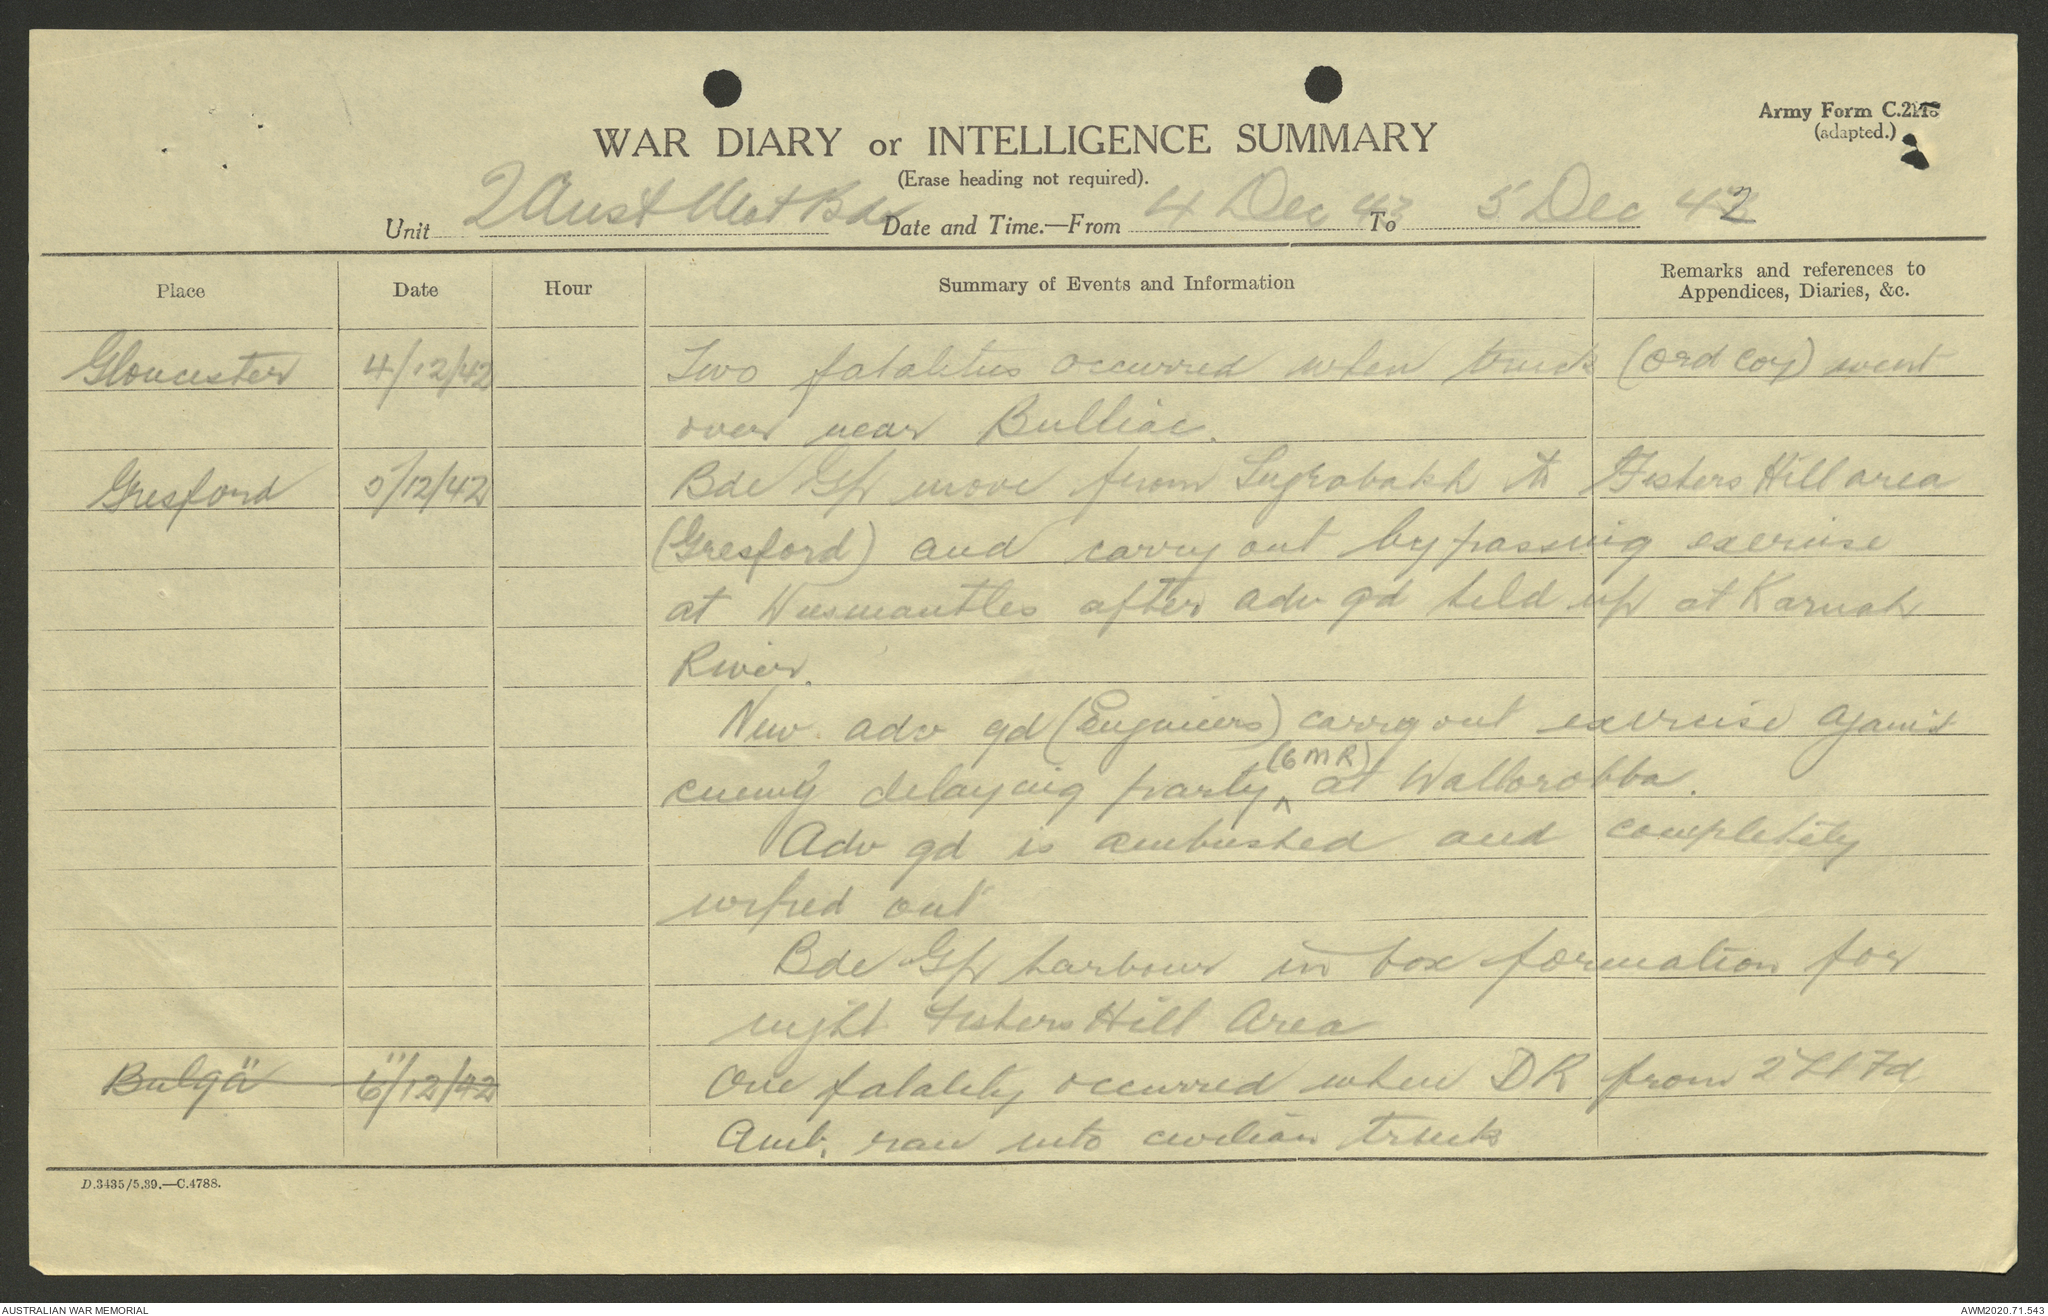 Army Form C.2118
(adapted.)
WAR DIARY or INTELLIGENCE SUMMARY
(Erase heading not required).
Unit 2 Aust Mot Bde Date and Time.—From 4 Dec 42 To 5 Dec 42
Place Date Hour Summary of Events and Information Remarks and references to Appendices, Diaries, &c.
Gloucester 4/12/42 Two fatalities occurred when truck (Ord Coy) went
over near Bulliac.
Gresford 5/12/42 Bde Gp move from to Fishers Hill area
(Gresford) and carry out bypassing exercise
at Wiesmantles after adv gd held up at Karuah
River.
New adv gd (Engineers) carry out exercise against
enemy delaying party (6 MR) at Wallorobba.
Adv gd is ambushed and completely
wiped out
Bde Gp harbour in box formation for
night Fishers Hill Area
Bulga 6/12/42 One fatality occurred when DR from 2 Lt Fd
Amb. ran into civilian truck
D.3435/5.39.—C.4788.
AUSTRALIAN WAR MEMORIAL
AWM2020.71.543